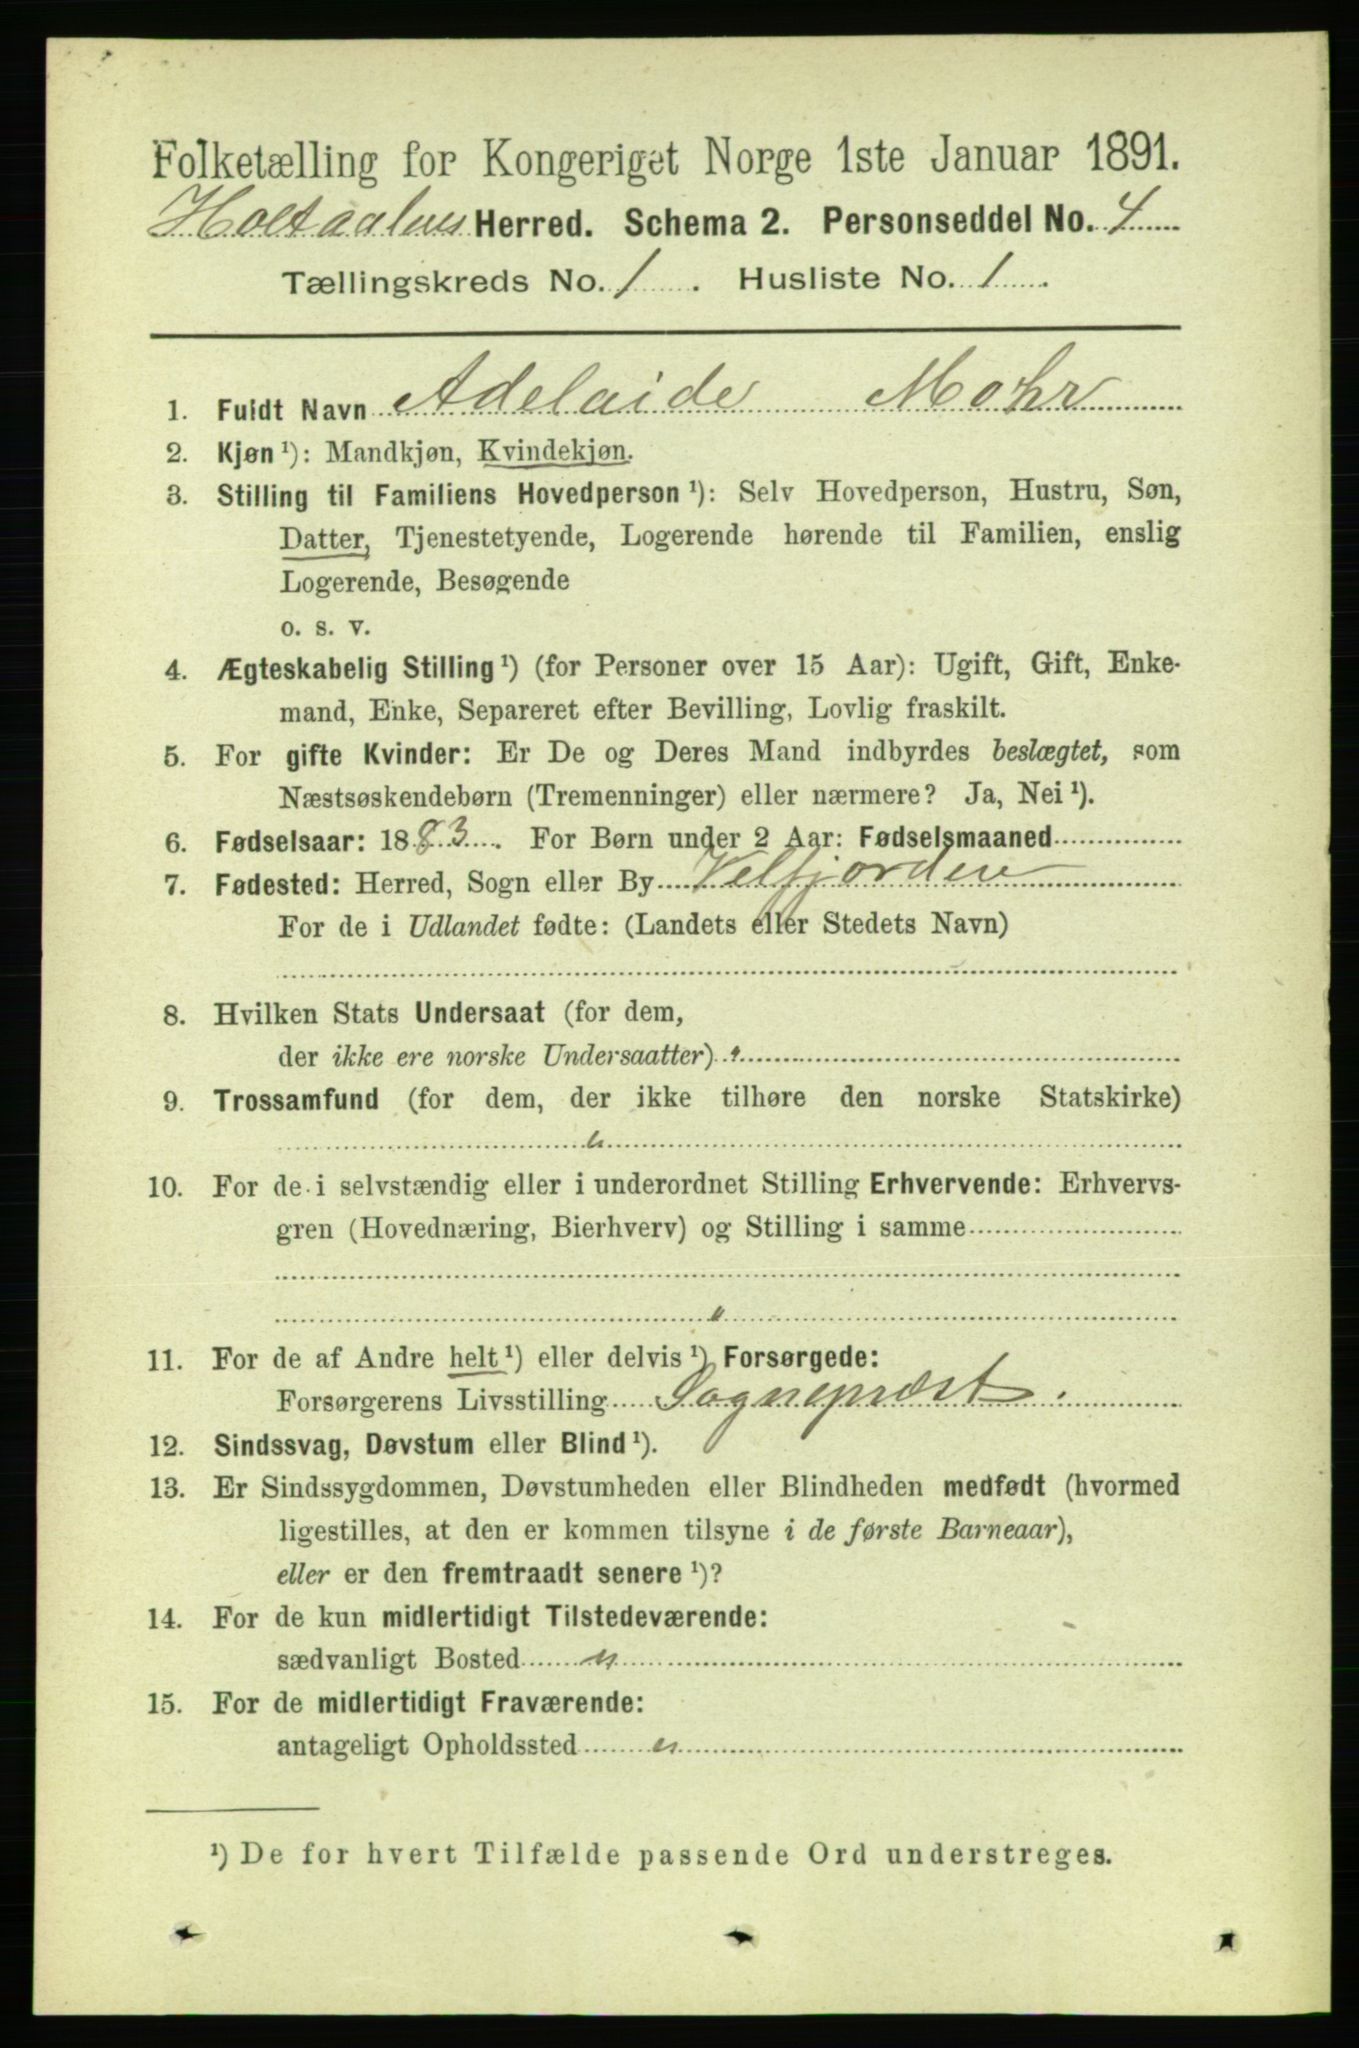 Folketælling for Kongeriget Norge 1ste Januar 1891.
Holtaalens Herred. Schema 2. Personseddel No. 4
Tællingskreds No. 1. Husliste No. 1.
1. Fuldt Navn Adelaide Mohr
2. Kjøn ¹): Mandkjøn, Kvindekjøn.
3. Stilling til Familiens Hovedperson ¹): Selv Hovedperson, Hustru, Søn,
Datter, Tjenestetyende, Logerende hørende til Familien, enslig
Logerende, Besøgende
o. s. v.
4. Ægteskabelig Stilling ¹) (for Personer over 15 Aar): Ugift, Gift, Enke-
mand, Enke, Separeret efter Bevilling, Lovlig fraskilt.
5. For gifte Kvinder: Er De og Deres Mand indbyrdes beslægtet, som
Næstsøskendebørn (Tremenninger) eller nærmere? Ja, Nei ¹).
6. Fødselsaar: 1883. For Børn under 2 Aar: Fødselsmaaned
7. Fødested: Herred, Sogn eller By Velfjorden
For de i Udlandet fødte: (Landets eller Stedets Navn)
8. Hvilken Stats Undersaat (for dem,
der ikke ere norske Undersaatter)
9. Trossamfund (for dem, der ikke tilhøre den norske Statskirke)
"
10. For de i selvstændig eller i underordnet Stilling Erhvervende: Erhvervs-
gren (Hovednæring, Bierhverv) og Stilling i samme
"
11. For de af Andre helt ¹) eller delvis ¹) Forsørgede:
Forsørgerens Livsstilling Sognepræst.
12. Sindssvag, Døvstum eller Blind ¹).
13. Er Sindssygdommen, Døvstumheden eller Blindheden medfødt (hvormed
ligestilles, at den er kommen tilsyne i de første Barneaar),
eller er den fremtraadt senere ¹)?
14. For de kun midlertidigt Tilstedeværende:
sædvanligt Bosted "
15. For de midlertidigt Fraværende:
antageligt Opholdssted "
¹) De for hvert Tilfælde passende Ord understreges.